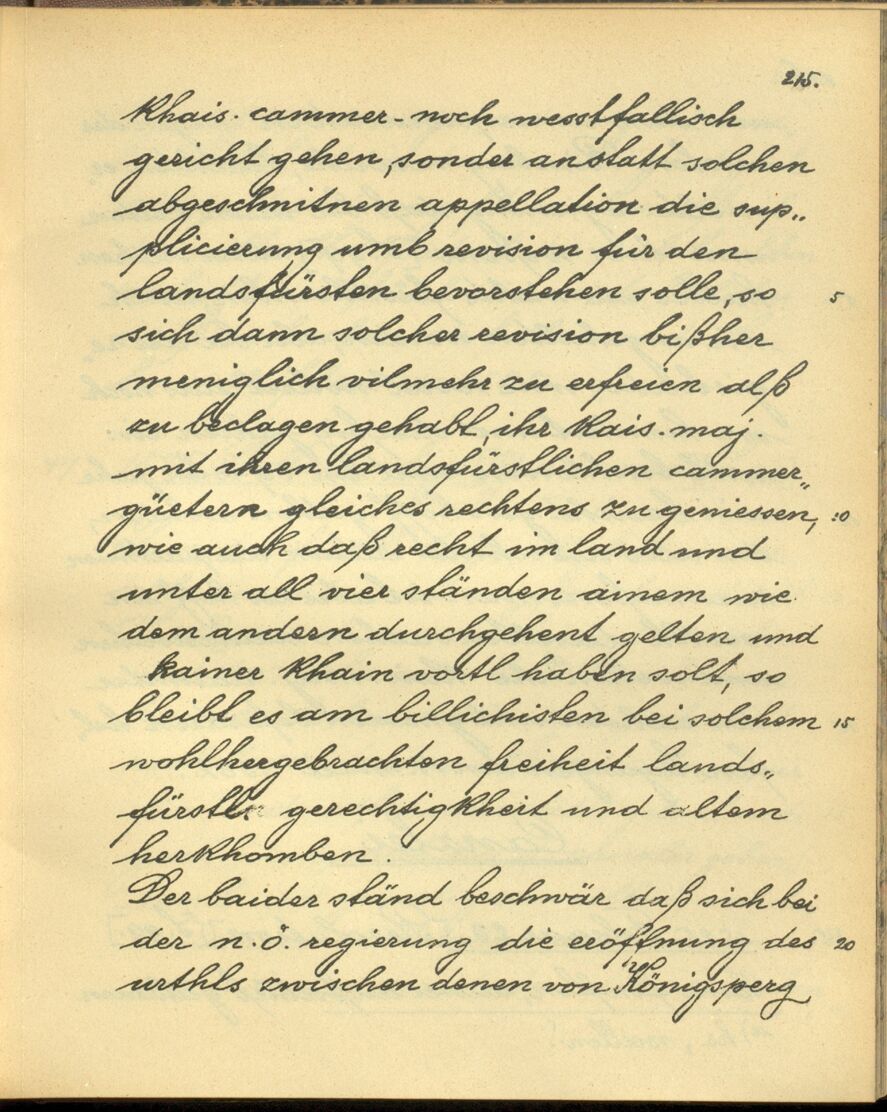 215.
Khais. cammer- noch wesstfallisch
gericht gehen, sonder anstatt solchen
abgeschnitnen appellation die sup„
plicierung umb revision für den
landsfürsten bevorstehen solle, so 5
sich dann solcher revision bißher
meniglich vilmehr zu erfreien alß
zu beclagen gehabt, ihr Kais. maj.
mit ihren landsfürstlichen cammer„
güetern gleiches rechtens zu geniessen, 10
wie auch daß recht im land und
unter all vier ständen ainem wie
dem andern durchgehent gelten und
kainer Khain vortl haben solt, so
bleibt es am billichisten bei solchem 15
wohlhergebrachten freiheit lands„
fürstl. gerechtigKheit und altem
herKhomben.
Der baider ständ beschwär daß sich bei
der n. ö. regierung die eröffnung des 20
urthls zwischen denen von Königsperg